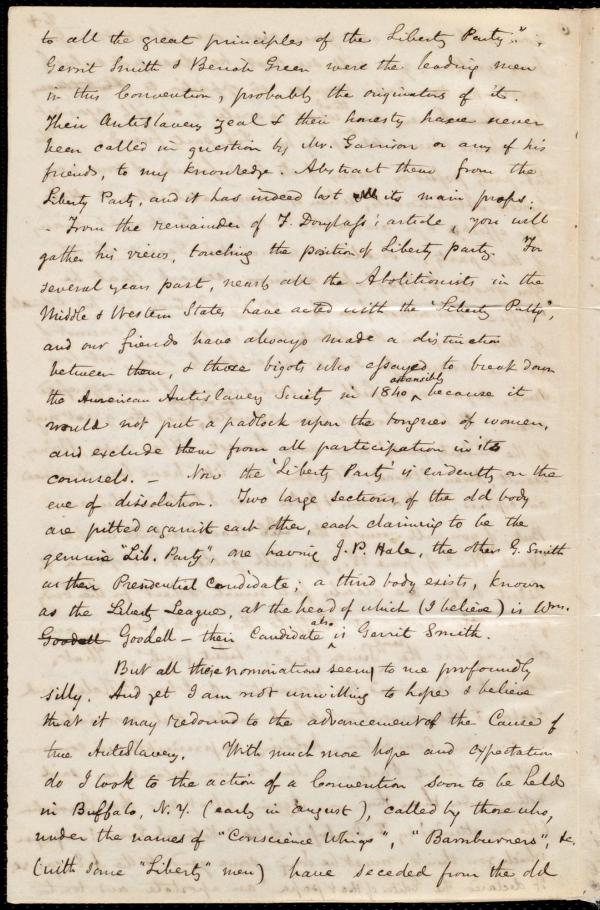 to all the great principles of the Liberty Party."
Gerrit Smith & Beriah Green were the leading men
in this Convention, probably the originators of it.
Their Antislavery zeal & their honesty have never
been called in question by Mr. Garrison or any of his
friends, to my knowledge. Abstract them from the
Liberty Party, and it has indeed lost its main props.
- From the remainder of F. Douglass's article, you will
gather his views, touching the position of Liberty party. For
several years past, nearly all the Abolitionists in the
Middle & Western States have acted with the "Liberty Party",
and our friends have always made a distinction
between them, & those bigots who essayed to break down
the American Antislavery Society in 1840 ostensibly because it
would not put a padlock upon the tongues of women,
and exclude them from all participation in its
counsels. - Now the 'Liberty Party' is evidently on the
eve of dissolution. Two large sections of the old body
are pitted against each other, each claiming to be the
genuine "Lib. Party", one having J. P. Hale, the other G. Smith
as their Presidential Candidate; a third body exists, known
as the Liberty League, at the head of which (I believe) is Wm.
Goodell Goodell - their Candidate also is Gerrit Smith.
But all these nominations seem to me profoundly
silly. And yet I am not unwilling to hope & believe
that it may redound to the advancement of the Cause of
true Antislavery. With much more hope and expectation
do I look to the action of a Convention soon to be held
in Buffalo, N.Y. (early in august), called by those who,
under the names of "Conscience Whigs", "Barnburners", &c.
(with some "Liberty" men) have seceded from the old